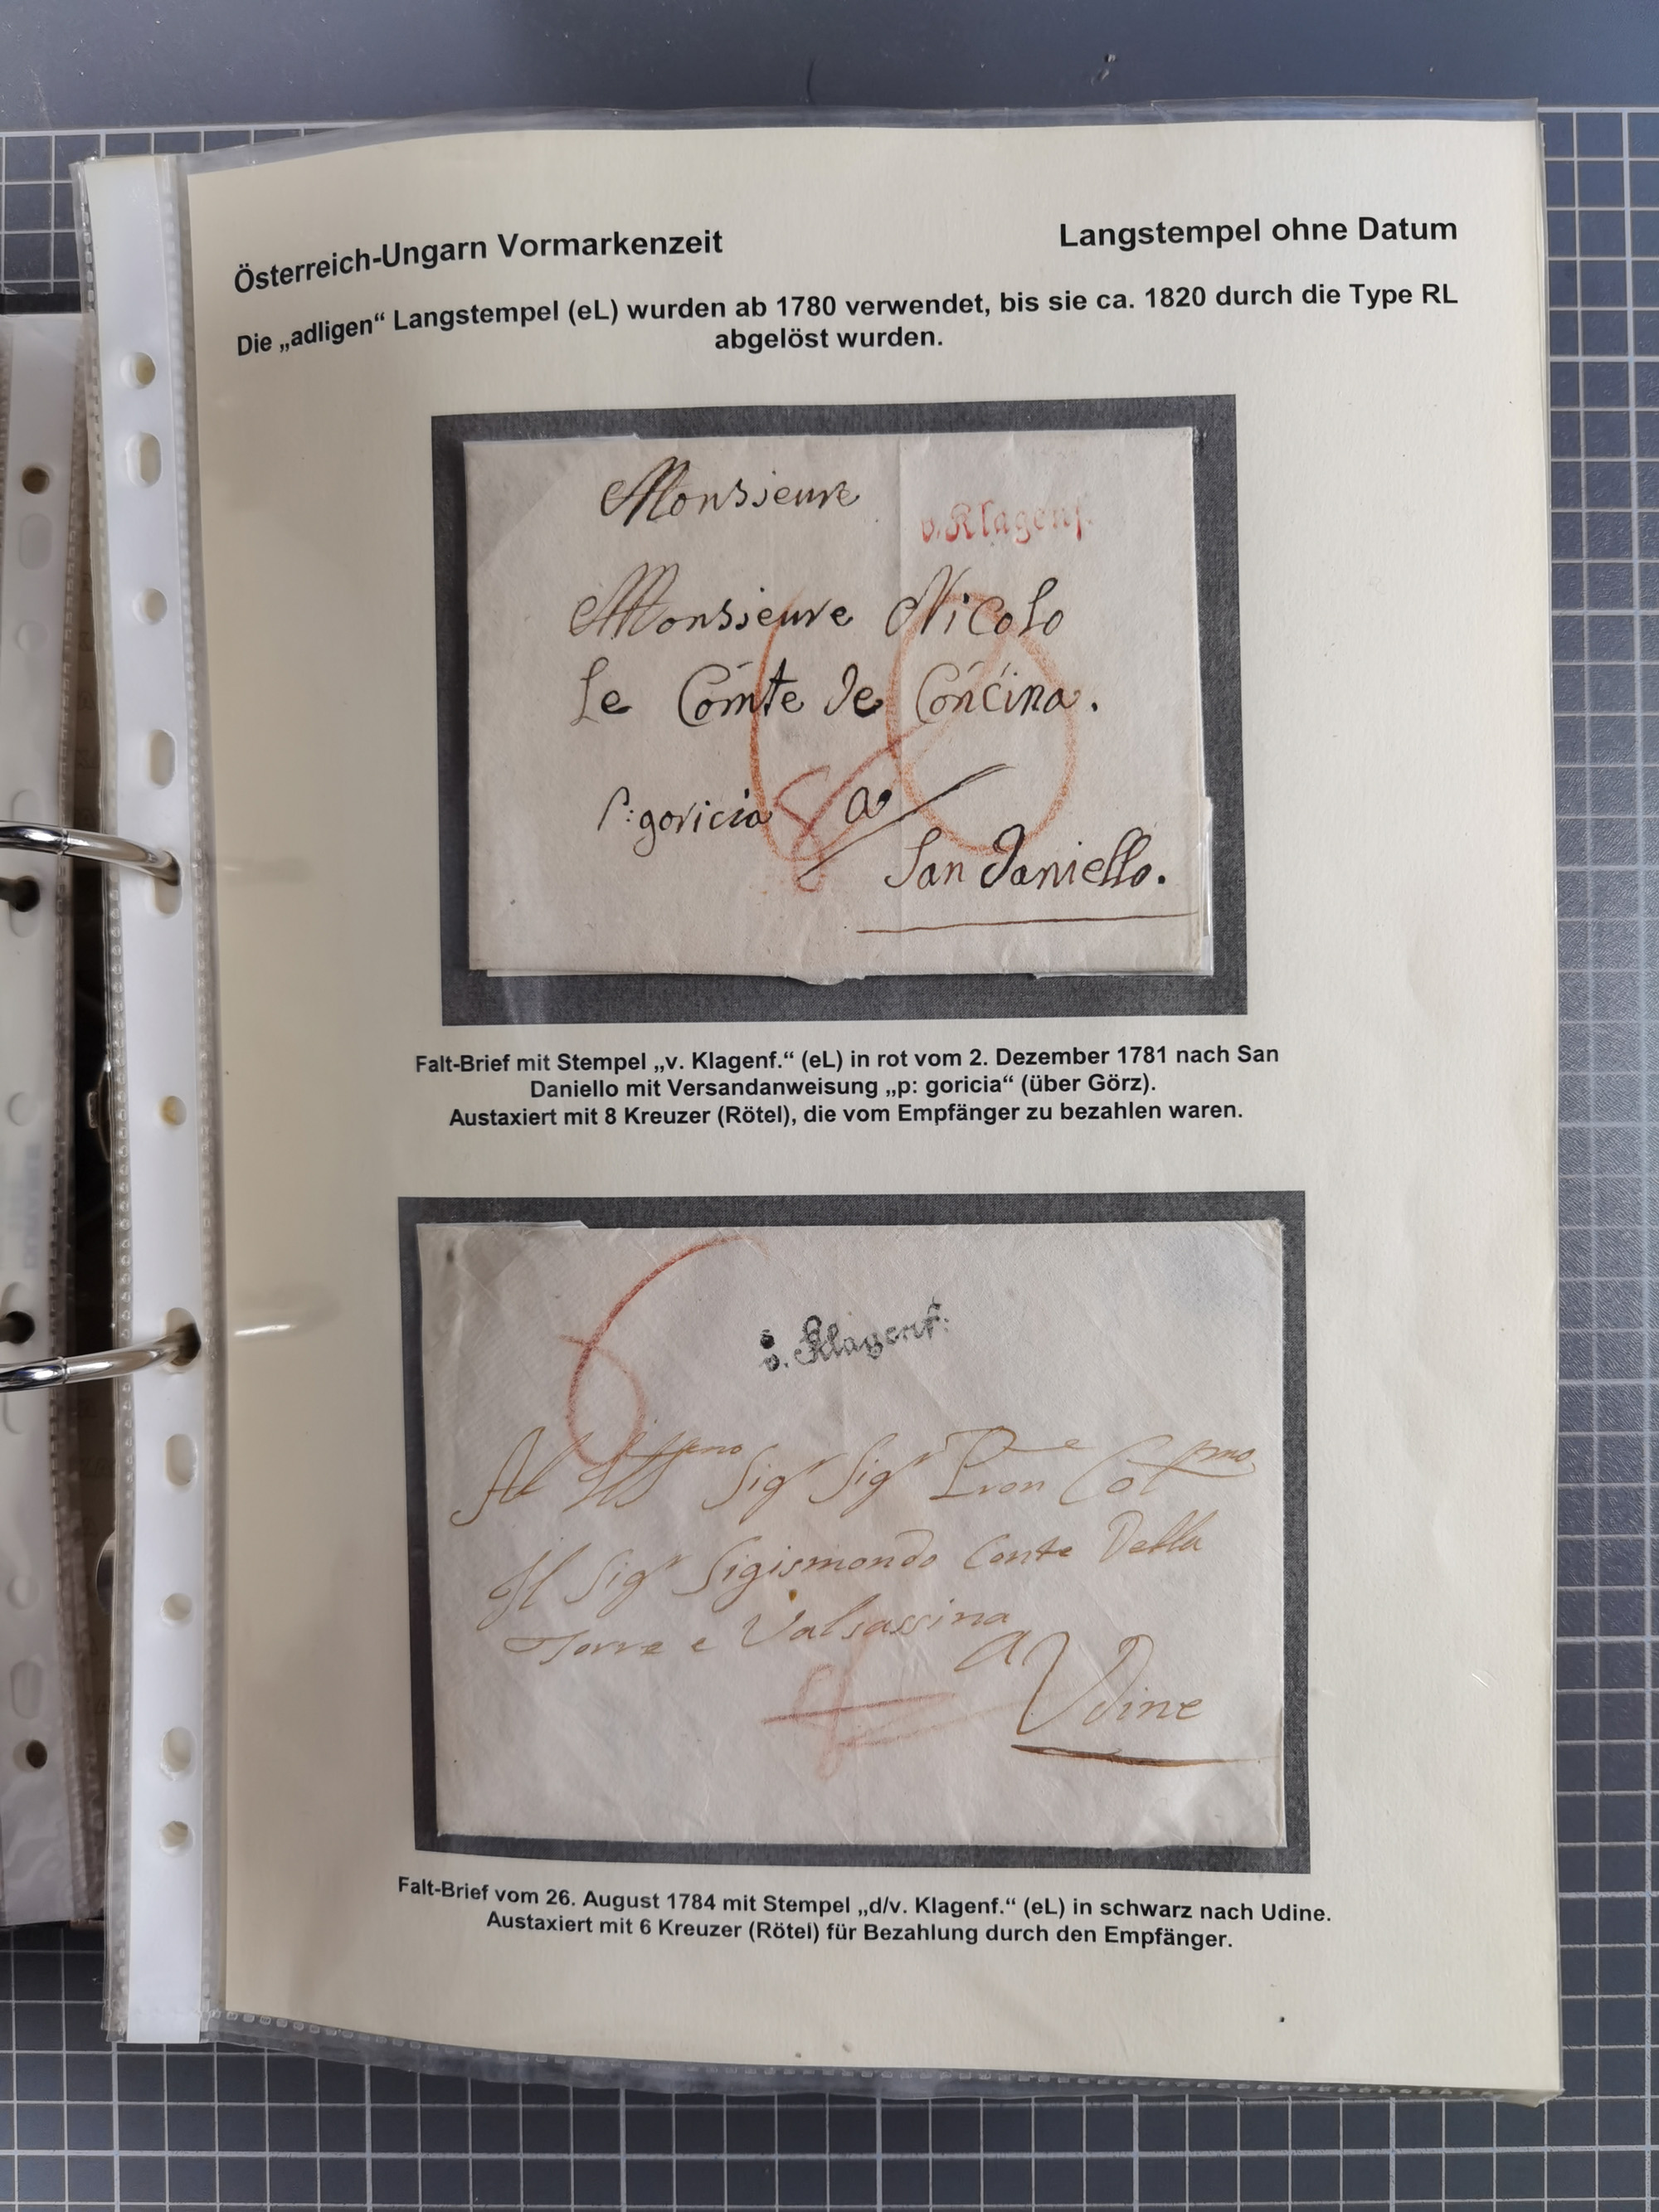 Österreich-Ungarn Vormarkenzeit
Langstempel ohne Datum
Die „adligen“ Langstempel (eL) wurden ab 1780 verwendet, bis sie ca. 1820 durch die Type RL
abgelöst wurden.
Monsieure
v. Klagenf.
Monsieure Nicolo
Le Comte de Concina.
p: goricia 8 a
San Daniello.
Falt-Brief mit Stempel „v. Klagenf.“ (eL) in rot vom 2. Dezember 1781 nach San
Daniello mit Versandanweisung „p: goricia“ (über Görz).
Austaxiert mit 8 Kreuzer (Rötel), die vom Empfänger zu bezahlen waren.
6
v. Klagenf:
Al Sigr Sigr Pron
Il Sigr Sigismondo Conte Della
Torre e Valsassina
a Udine
Falt-Brief vom 26. August 1784 mit Stempel „d/v. Klagenf.“ (eL) in schwarz nach Udine.
Austaxiert mit 6 Kreuzer (Rötel) für Bezahlung durch den Empfänger.